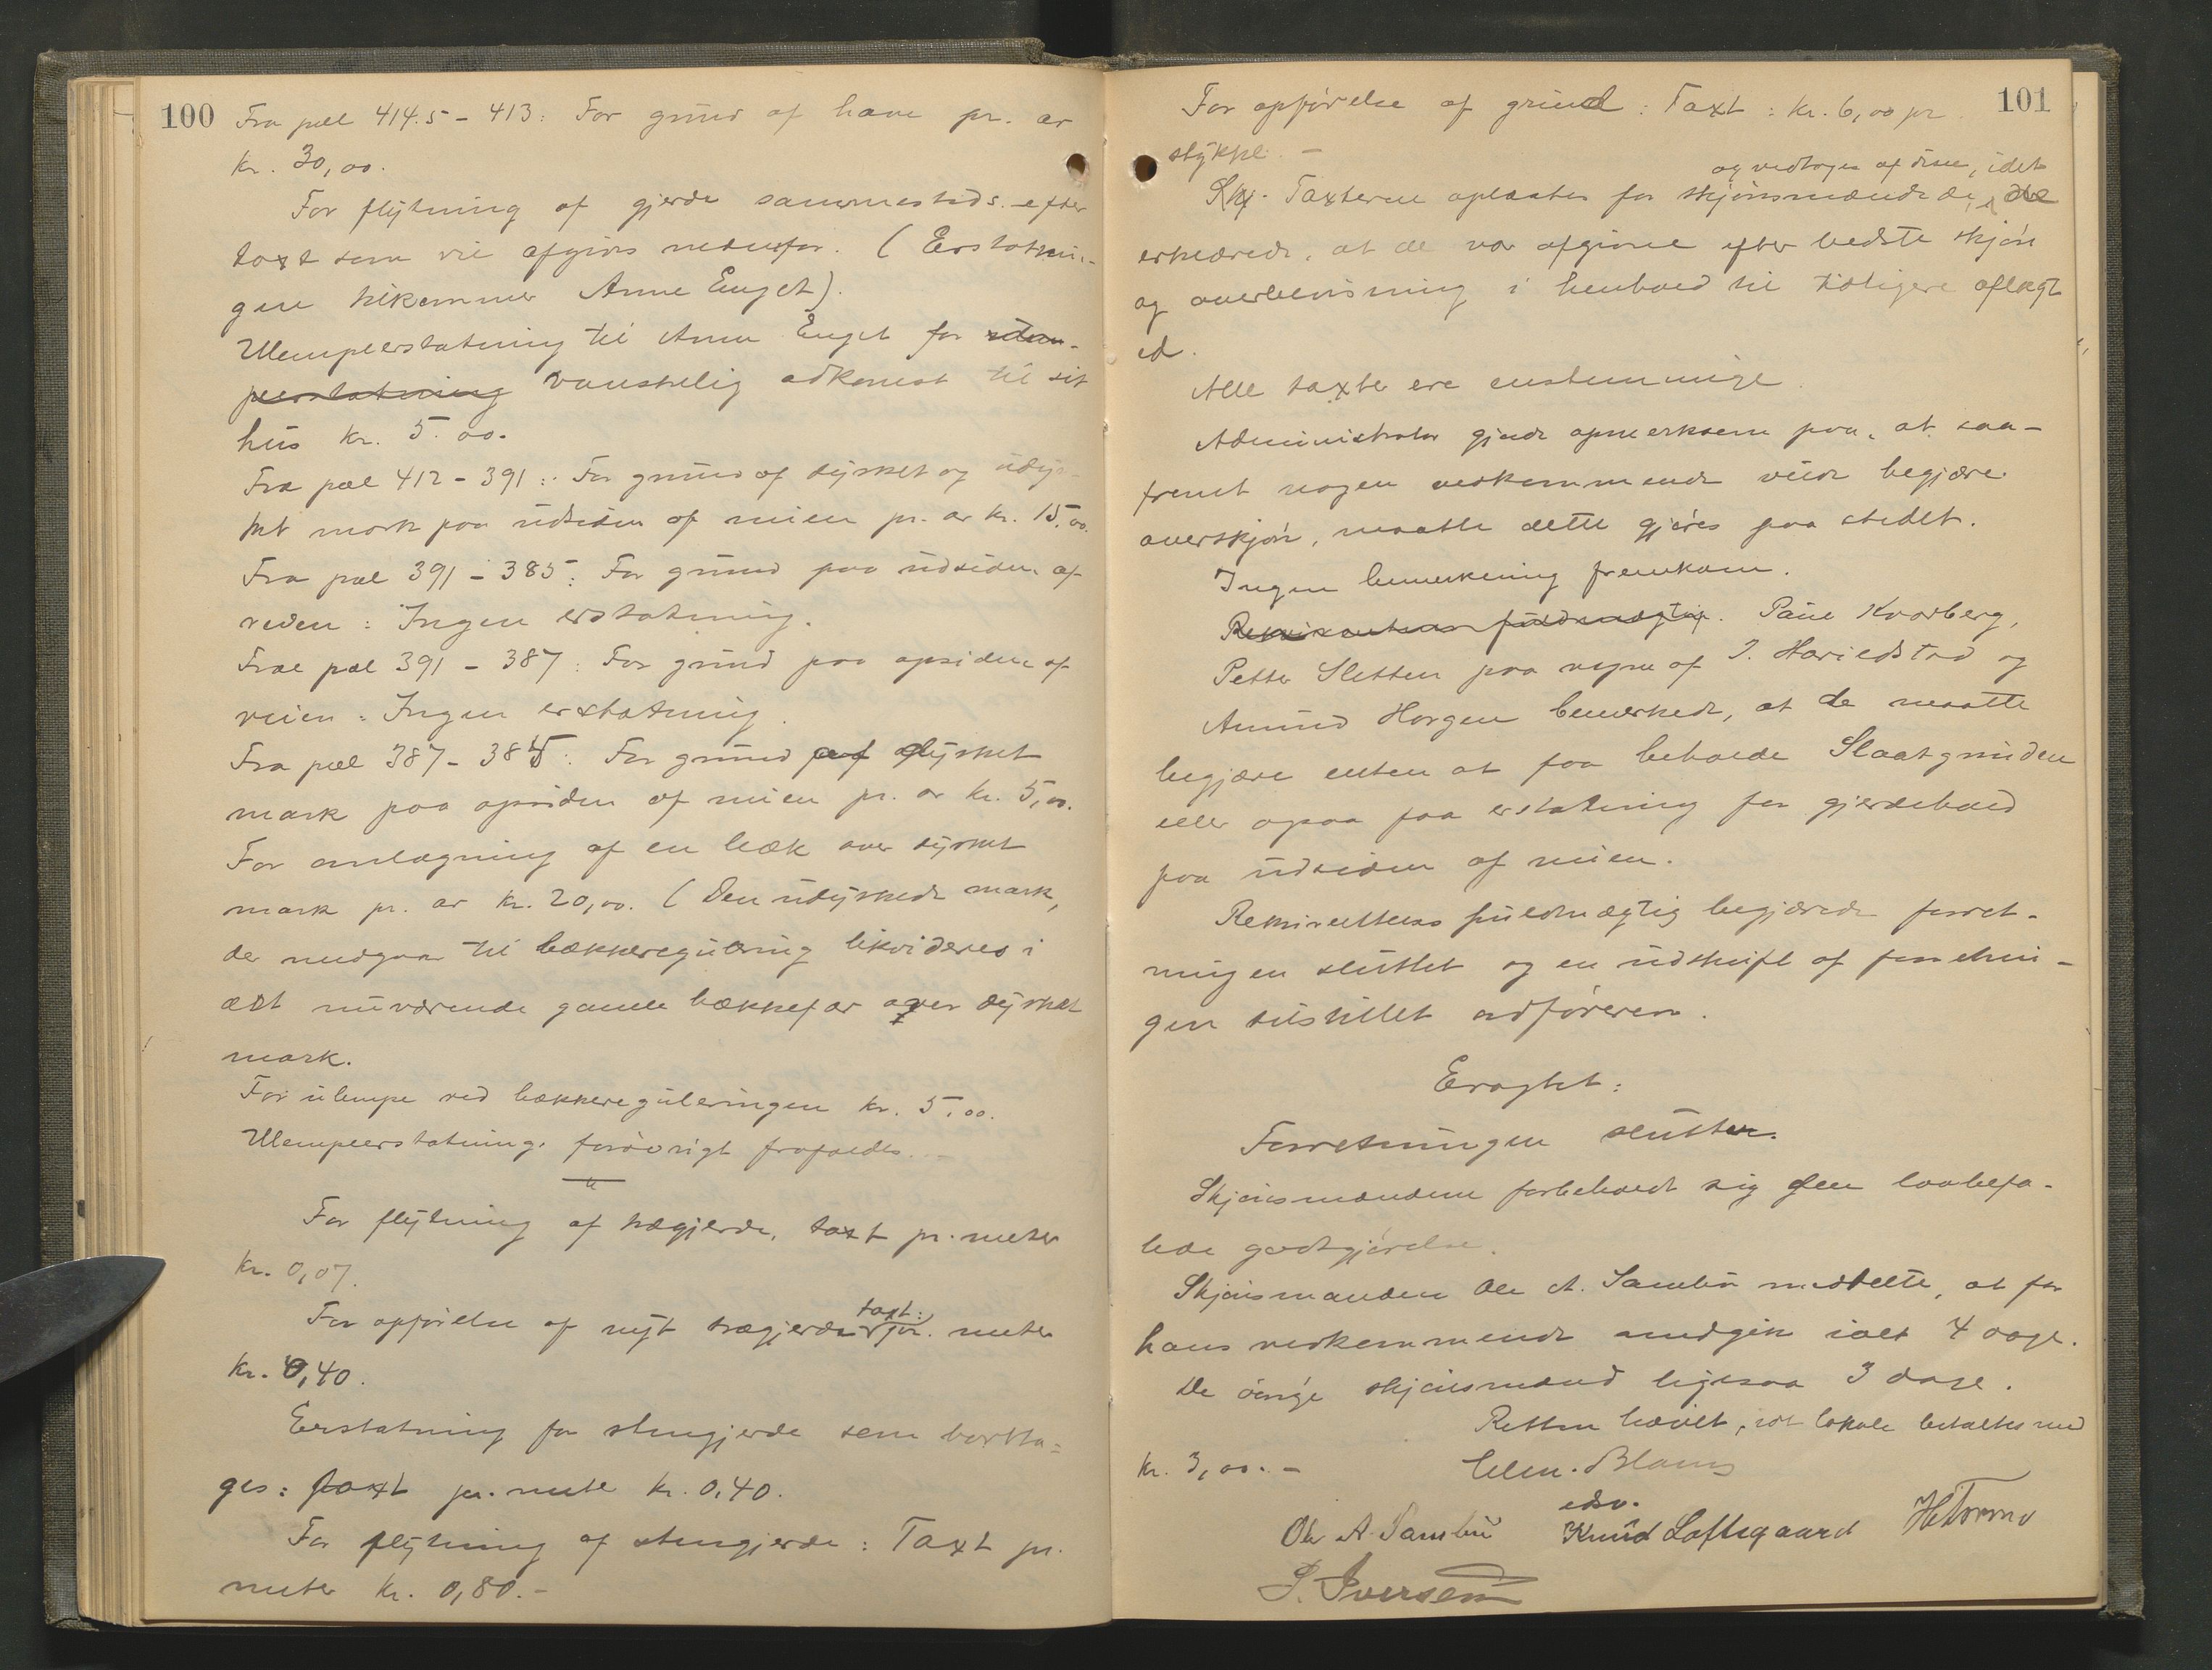 100
Fra pæl 414.5 - 413: For grund af have pr. ar
kr. 30,00.
For flytning af gjerde sammesteds efter
taxt som vil afgives nedenfor. (Erstatnin-
gen tilkommer Anne Enget).
Ulempeerstatning til Anne Enget for ulem-
peerstatning vanskelig adkomst til sit
hus kr. 5.00.
Fra pæl 412 - 391: For grund af dyrket og udyr-
ket mark paa udsiden af veien pr. ar kr. 15,00.
Fra pæl 391 - 385: For grund paa udsiden af
veien: Ingen erstatning.
Fra pæl 391 - 387: For grund paa opsiden af
veien: Ingen erstatning.
Fra pæl 387 - 385: For grund af dyrket
mark paa opsiden af veien pr. ar kr. 5,00.
For anlægning af en bæk over dyrket
mark pr. ar kr. 20,00. (Den udyrkede mark,
der medgaar til bækkeregulering likvideres i
det nuværende gamle bækkefar over dyrket
mark.
For ulempe ved bækkereguleringen kr. 5,00.
Ulempeerstatning forøvrigt frafaldtes.
"
For flytning af trægjerde, taxt pr. meter
kr. 0,07.
For opførelse af nyt trægjerde taxt: pr. meter
kr. 0,40.
Erstatning for stengjerde som bortta-
ges: taxt pr. meter kr. 0,40.
For flytning af stengjerde: Taxt pr.
meter kr. 0,80.-
101
For opførelse af grind: Taxt: kr. 6,00 pr.
stykke. -
og vedtoges af disse, idet
Taxterne oplæstes for skjønsmændene, de
erklærede, at de var afgivne efter bedste skjøn
og overbevisning i henhold til tidligere aflagt
ed.
Alle taxter ere enstemmige.
Administrator gjorde opmerksom paa, at saa-
fremt nogen vedkommende vilde begjære
overskjøn, maatte dette gjøres paa stedet.
Ingen bemerkning fremkom.
Rekvirentens fuldmægtig. Paul Kvarberg,
Petter Sletten paa vegne af I. Harildstad og
Amund Horgen bemerkede, at de maatte
begjære enten at faa beholde Slaatgrinden
eller ogsaa faa erstatning for gjerdehold
paa udsiden af veien.
Rekvirentens fuldmægtig begjærede forret-
ningen sluttet og en udskrift af forretnin-
gen tilstillet amtføreren.
Eragtet:
Forretningen sluttes.
Skjønsmændene forbeholdt sig den lovbefa-
lede godtgjørelse.
Skjønsmanden Ole A. Sambu meddelte, at for
hans vedkommende medgik ialt 4 dage.
De øvrige skjønsmænd ligesaa 3 dage.
Retten hævet, idet lokale betaltes med
kr. 3,00. -
Clem. Blaus
edsv.
Ole A. Sambu Knud Loftsgaard
P. Iversen